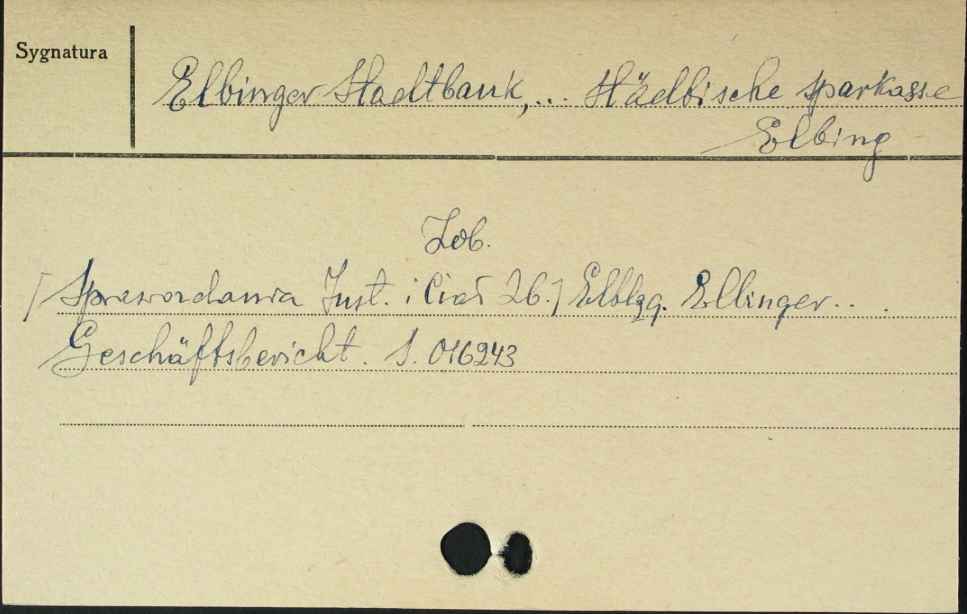 Sygnatura
Elbinger Stadtbank, ... Städtische Sparkasse
Elbing
Zob.
[Sprawozdania Inst. i Ciał Zb.] Elbląg. Elbinger...
Geschäftsbericht. S. 016243